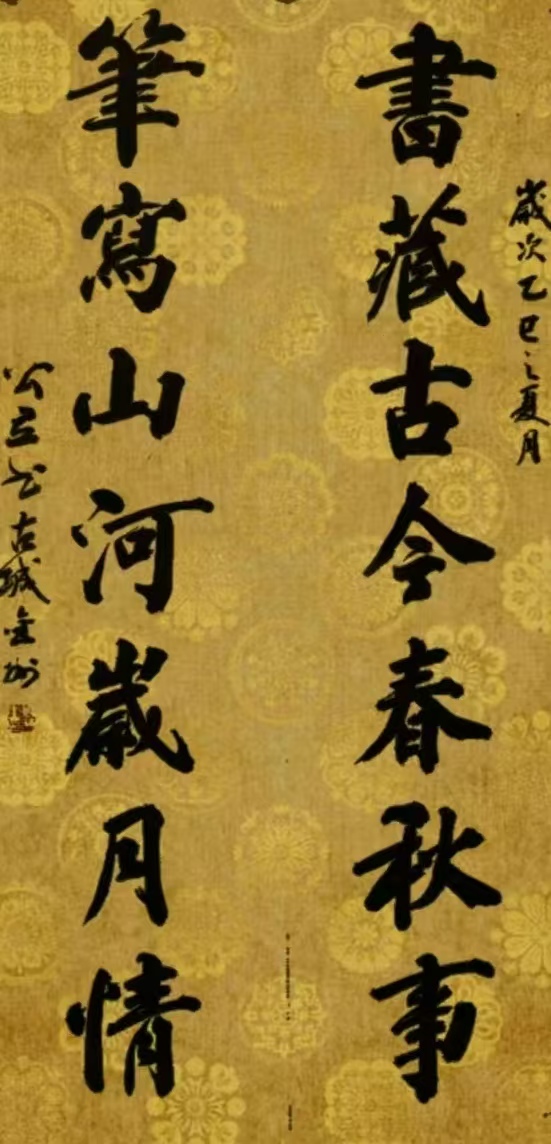 歲次乙巳之夏月
書藏古今春秋事
筆寫山河歲月情
公立书古城金州